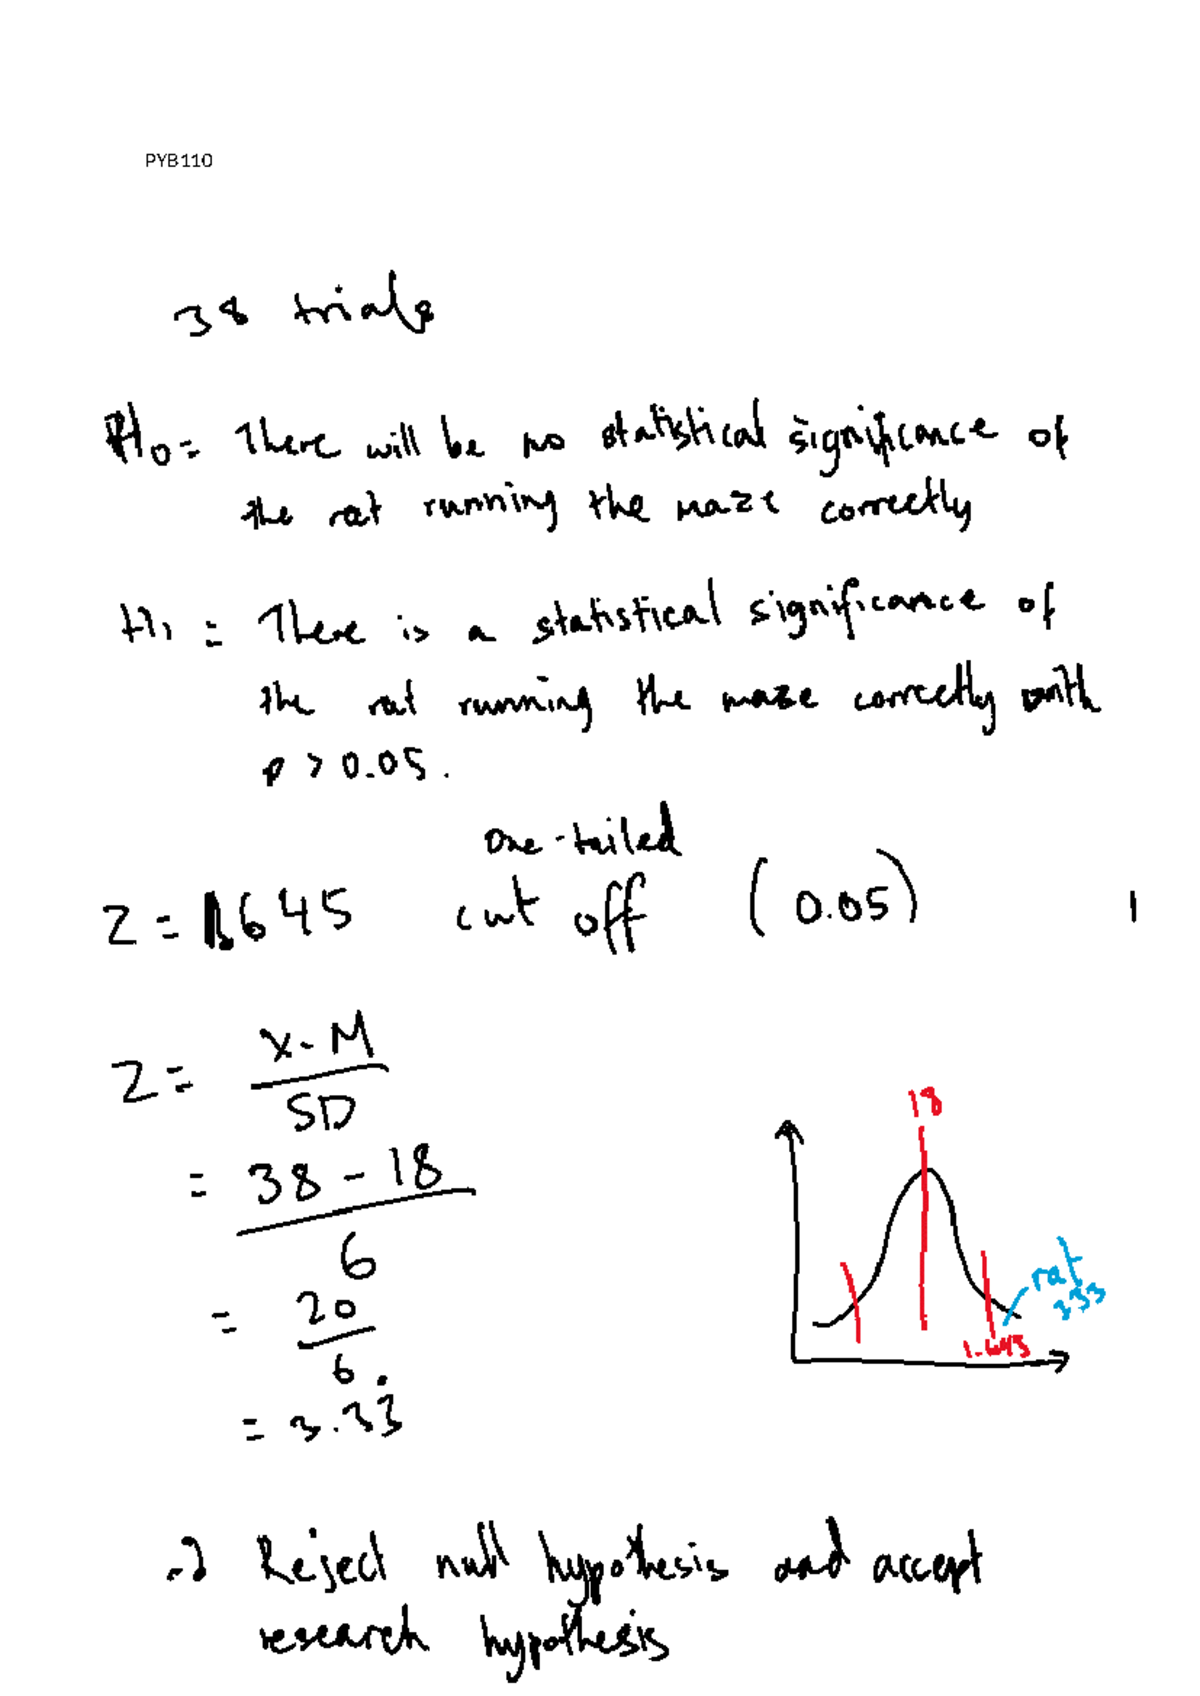 PYB110
38 trials
H₀ = There will be no statistical significance of
the rat running the maze correctly
H₁ = There is a statistical significance of
the rat running the maze correctly with
p > 0.05.
one-tailed
Z = 1.645 cut off (0.05) 1
Z = X - M
SD
= 38 - 18
6
= 20
6
= 3.33̇
18
rat
3.33
1.645
→ Reject null hypothesis and accept
research hypothesis